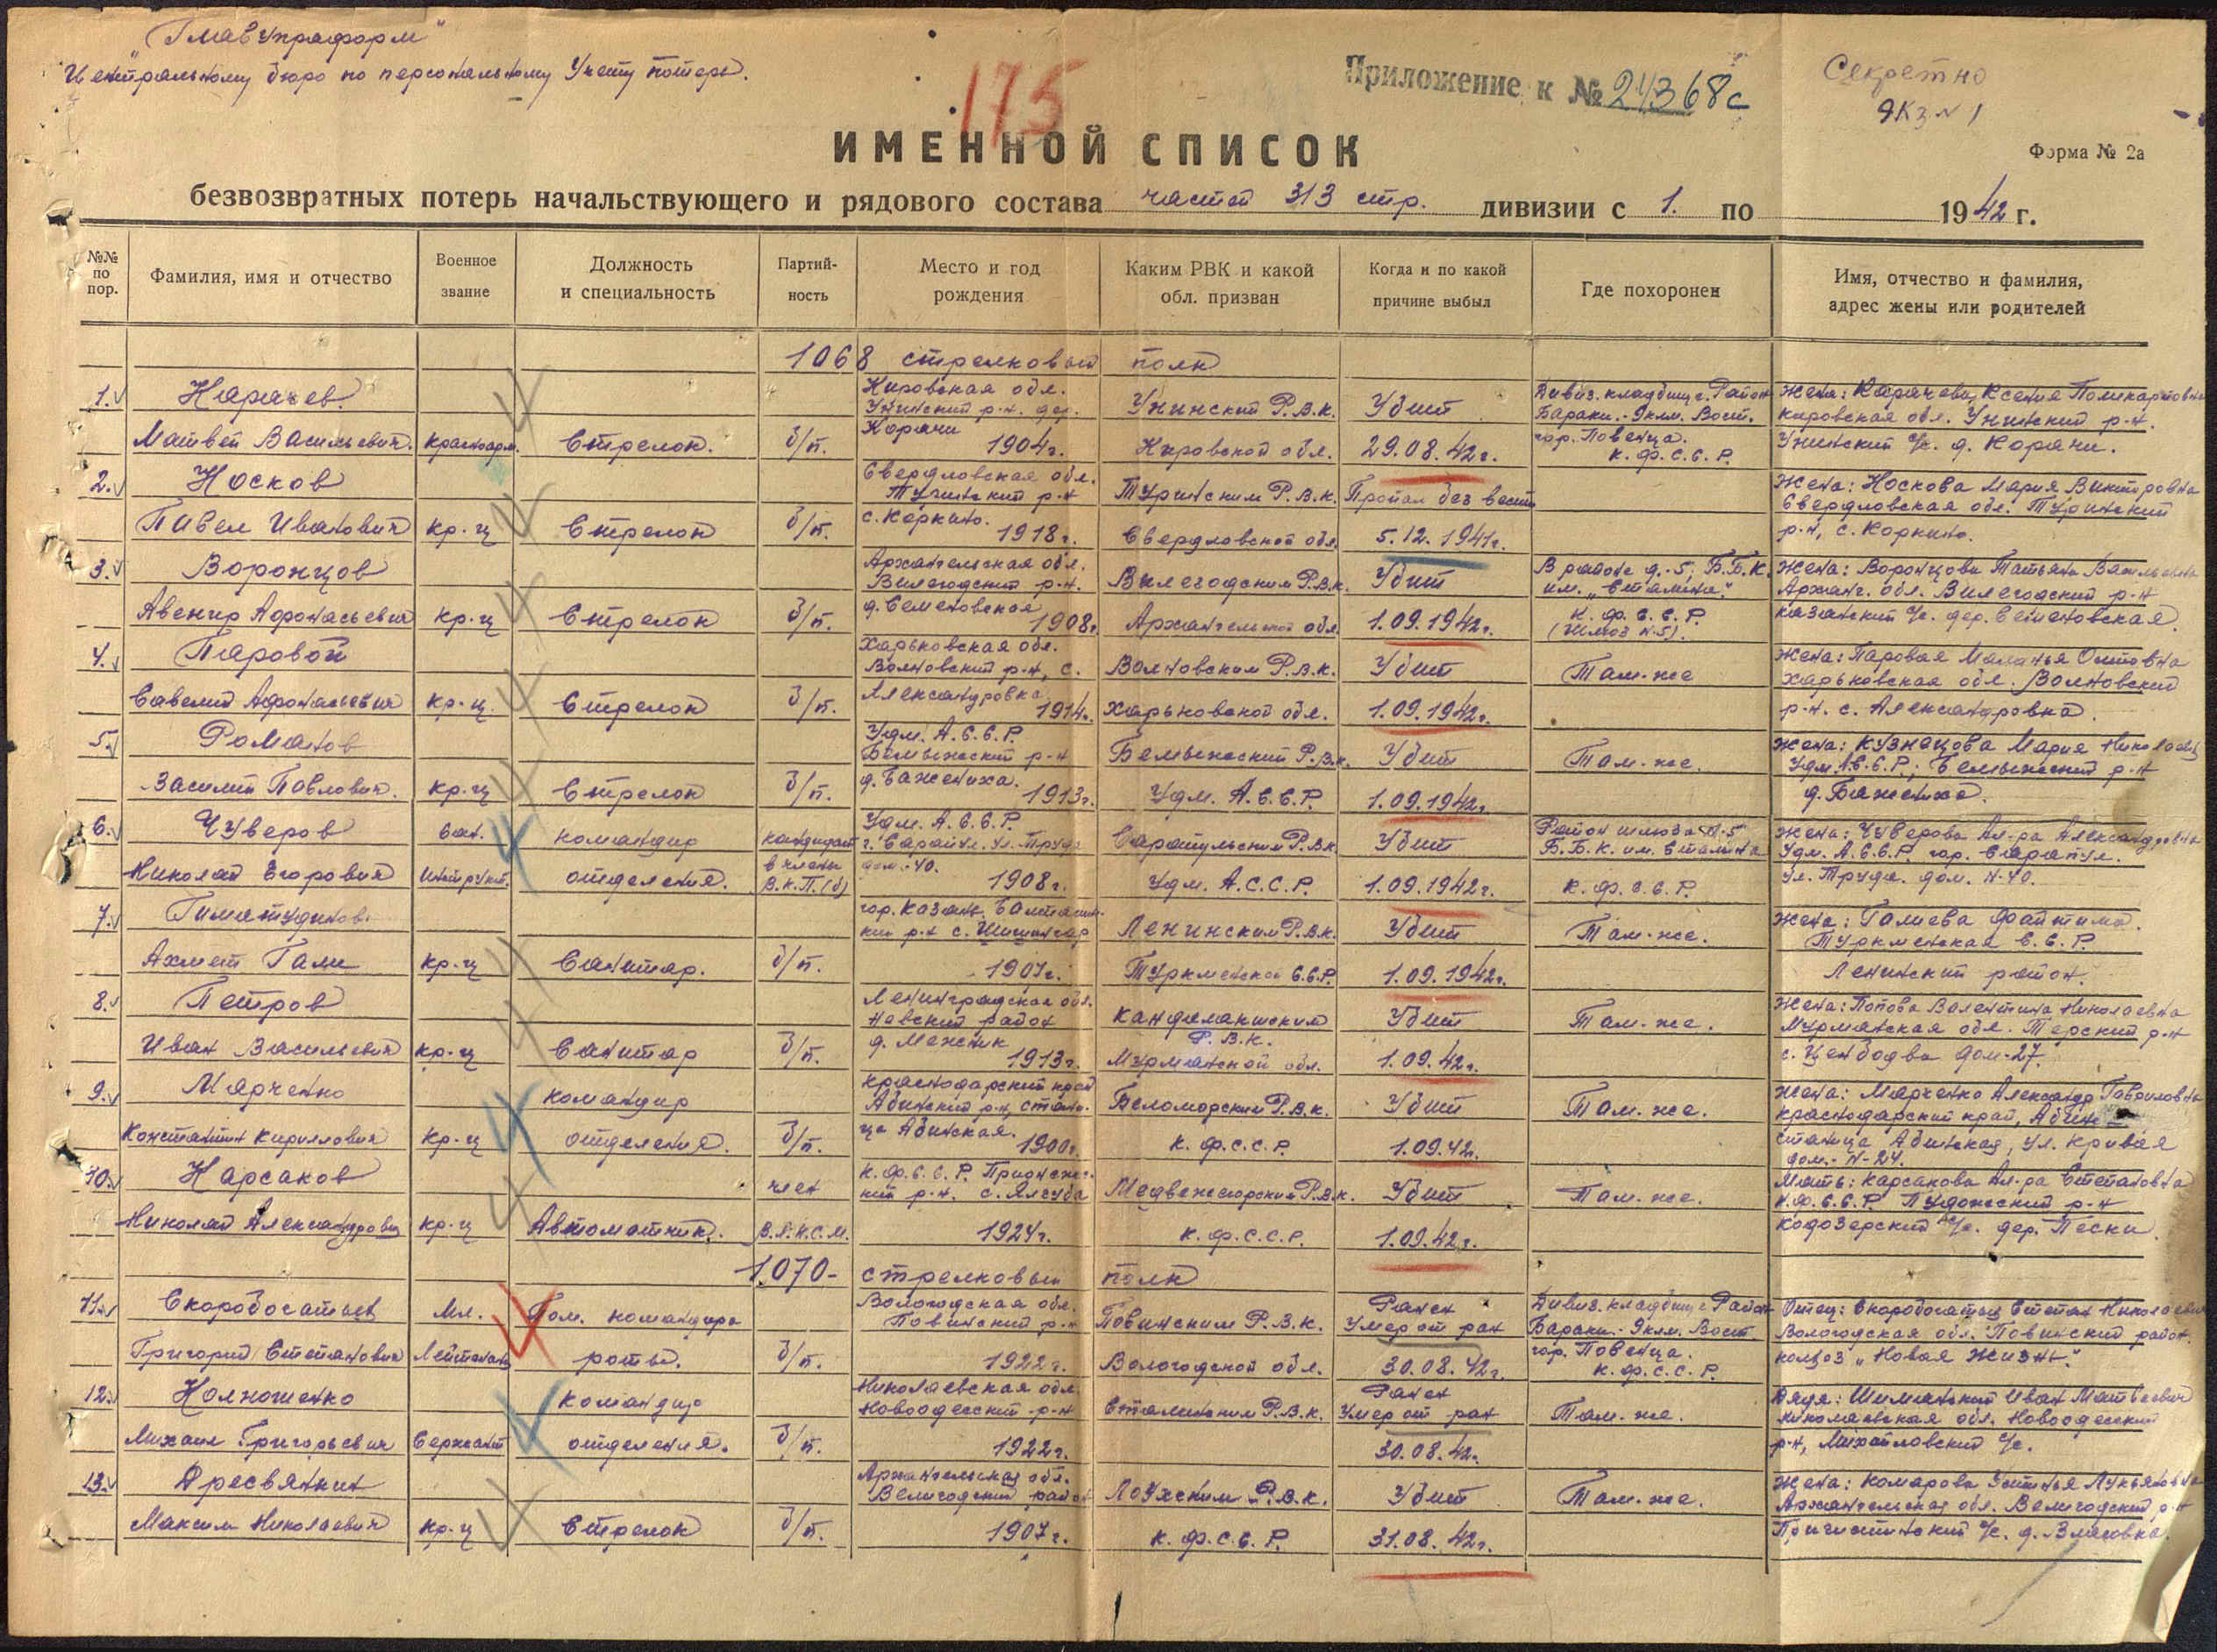 "Главупраформ"
Центральному бюро по персональному учету потерь.
175
Приложение к № 21/368с
Секретно
Экз № 1
ИМЕННОЙ СПИСОК
Форма № 2а
безвозвратных потерь начальствующего и рядового состава частей 313 стр. дивизии с 1. по 1942 г.
№№ по пор.
Фамилия, имя и отчество
Военное звание
Должность и специальность
Партий-ность
Место и год рождения
Каким РВК и какой обл. призван
Когда и по какой причине выбыл
Где похоронен
Имя, отчество и фамилия, адрес жены или родителей
1068 стрелковый полк
1. Карачев Матвей Васильевич. Красноарм. Стрелок. б/п. Кировская обл. Унинский р-н. дер. Корачи 1904г. Унинский Р.В.К. Кировской обл. Убит 29.08.42г. Дивиз. кладбищ. Район Бараки - 9клм. Вост. гор. Повенца. К.Ф.С.С.Р. Жена: Карачева Ксения Поликарповна Кировская обл. Унинский р-н. Унинский с/с. д. Корачи.
2. Носков Павел Иванович кр-ц Стрелок б/п. Свердловская обл. Туринский р-н с. Коркино. 1918г. Туринским Р.В.К. Свердловской обл. Пропал без вести 5.12.1941г. Жена: Носкова Мария Викторовна Свердловская обл. Туринский р-н, с. Коркино.
3. Воронцов Авенир Афонасьевич кр-ц Стрелок б/п. Архангельская обл. Вилегодский р-н. д. Семеновская 1908г. Вилегодским Р.В.К. Архангельской обл. Убит 1.09.1942г. В районе д.-5, Б.Б.К. им. "Сталина". К.Ф.С.С.Р. (Шлюз №5). Жена: Воронцова Татьяна Васильевна Арханг. обл. Вилегодский р-н Казанский с/с. дер. Семеновская.
4. Паровой Савелий Афонасьевич кр-ц. Стрелок б/п. Харьковская обл. Волховский р-н, с. Александровка 1914г. Волховским Р.В.К. Харьковской обл. Убит 1.09.1942г. Там-же Жена: Паровая Маланья Харьковская обл. Волховский р-н. с. Александровка.
5. Романов Василий Павлович. кр-ц Стрелок б/п. Удм. А.С.С.Р. р-н д. Бажениха. 1913г. Р.В.К. Удм. А.С.С.Р. Убит 1.09.1942г. Там-же. Жена: Кузнецова Мария Николаев. Удм. А.С.С.Р.; р-н д. Бажениха.
6. Чуверов Николай Егорович Сан. Инструкт. командир отделения. кандидат в члены В.К.П.(б) Удм. А.С.С.Р. г. Сарапул. ул. Труда дом-40. 1908г. Сарапульским Р.В.К. Удм. А.С.С.Р. Убит 1.09.1942г. Район шлюза №-5 Б.Б.К. им. Сталина К.Ф.С.С.Р. Жена: Чуверова Ал-ра Александровна Удм. А.С.С.Р. гор. Сарапул. Ул. Труда. дом. №-40.
7. Гиматудинов. Ахмет Гали кр-ц Санитар. б/п. гор. Казань. р-н с. 1907г. Ленинским Р.В.К. Туркменской С.С.Р. Убит 1.09.1942г. Там-же. Жена: Галиева Файтима. Туркменская С.С.Р. Ленинский район.
8. Петров Иван Васильевич кр-ц Санитар б/п. Ленинградская обл. Невский район д. Межник 1913г. Кандалакшским Р.В.К. Мурманской обл. Убит 1.09.42г. Там-же. Жена: Попова Валентина Николаевна Мурманская обл. Терский р-н с. дом-27.
9. Марченко Константин Кириллович кр-ц командир отделения. б/п. Краснодарский край Абинский р-н, станица Абинская. 1900г. Беломорским Р.В.К. К.Ф.С.С.Р. Убит 1.09.42г. Там-же. Жена: Марченко Александр Гавриловна Краснодарский край, Абинс станица Абинская, ул. Кривая дом.-№-24.
10. Карсаков Николай Александрович кр-ц Автоматчик. член В.Л.К.С.М. К.Ф.С.С.Р. Прионежский р-н. с. 1924г. Медвежегорским Р.В.К. К.Ф.С.С.Р. Убит 1.09.42г. Там-же. Мать: Карсакова Ал-ра Степановна К.Ф.С.С.Р. Пудожский р-н с/с. дер. Пески.
1070- стрелковый полк
11. Скоробогатых Григорий Степанович Мл. Лейтенант Пом. командира роты. б/п. Вологодская обл. Повинский р-н 1922г. Повинским Р.В.К. Вологодской обл. Ранен Умер от ран 30.08.42г. Дивиз. кладбищ. Район Бараки - 9клм. Вост. гор. Повенца. К.Ф.С.С.Р. Отец: Скоробогатых Степан Николаевич Вологодская обл. Повинский район. колхоз "Новая Жизнь".
12. Колношенко Михаил Григорьевич Сержант командир отделения. б/п. Николаевская обл. Новоодесский р-н 1922г. Сталинским Р.В.К. Ранен Умер от ран 30.08.42г. Там-же. Дядя: Шиманский Иван Матвеевич Николаевская обл. Новоодесский р-н, Михайловский с/с.
13. Дресвянкин Максим Николаевич кр-ц Стрелок б/п. Архангельская обл. Велигодский район 1907г. Лоухским Р.В.К. К.Ф.С.С.Р. Убит 31.08.42г. Там-же. Жена: Комарова Устинья Лукьяновна Архангельская обл. Велигодский р-н с/с. д. Власовка.